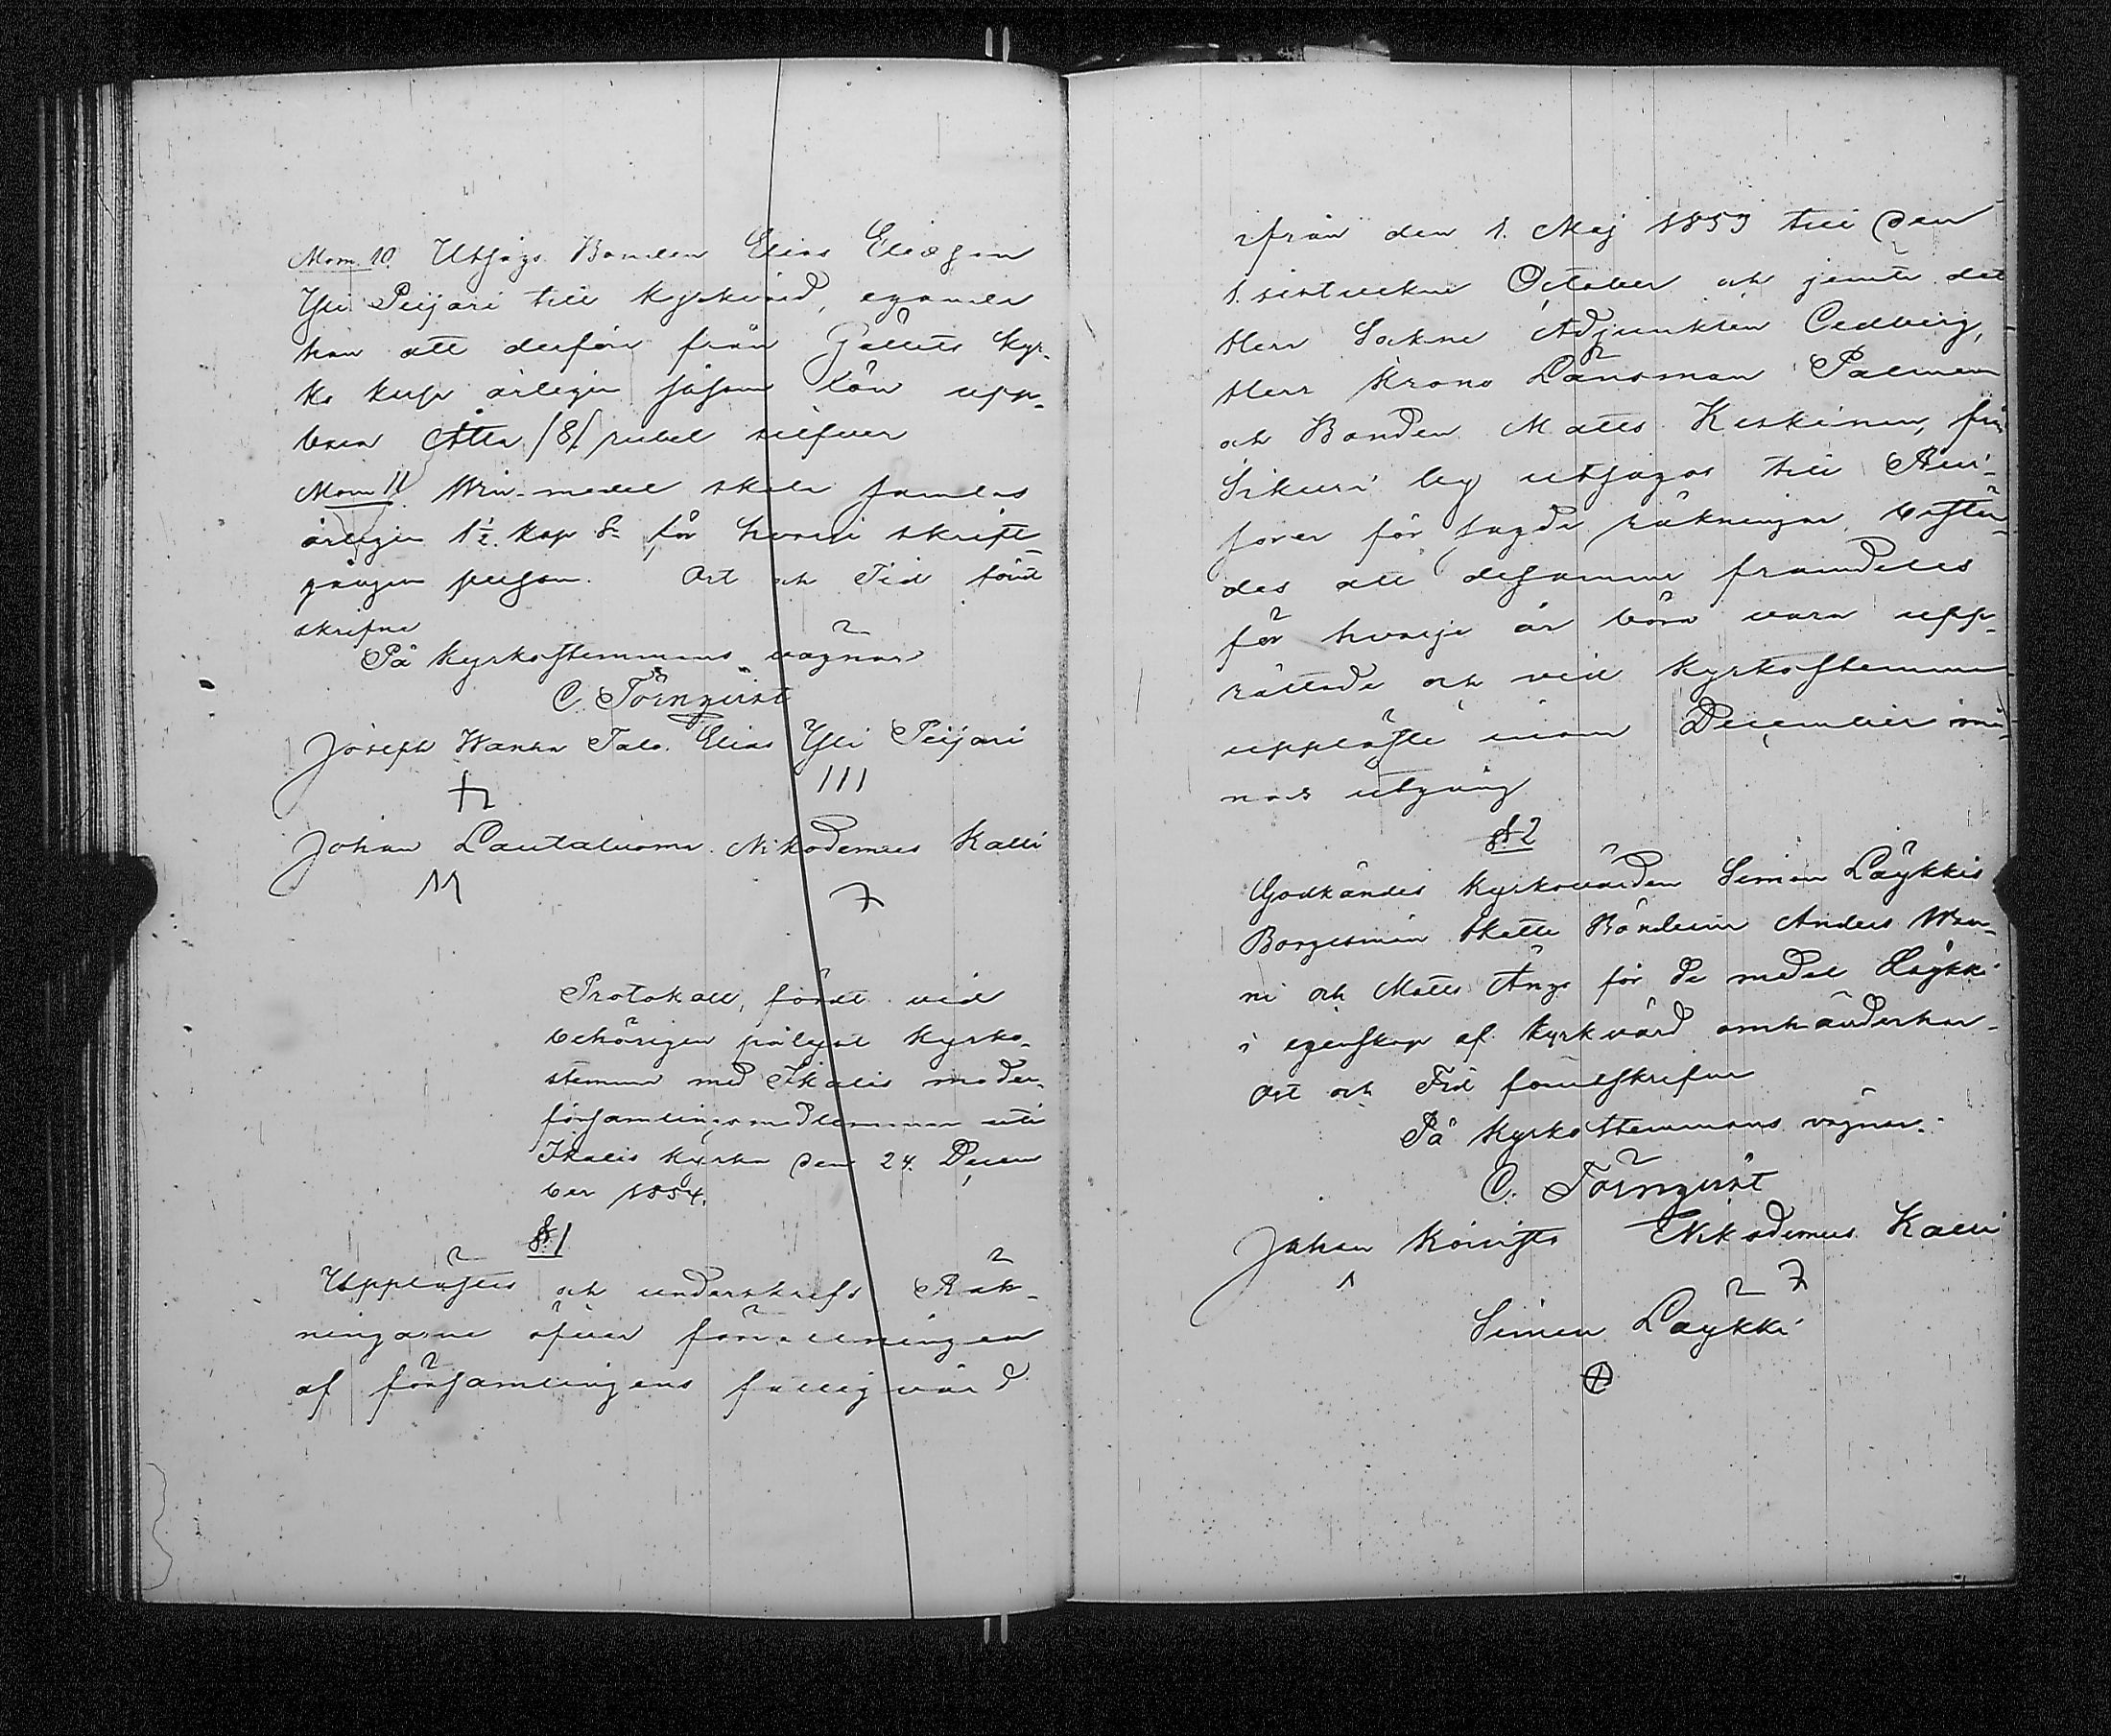 Mom. 10. Utsågs Bonden Elias Eliæson
Yli Peijari till kyrkvärd, egande
han att derföre från Gällets Kyr-
ko kassa årligen såsom lön upp-
bära Åtta /8/ rubel silfver
Mom 11. Win-medel skola samlas
årligen 1½ kop Sr för hvarje skrift-
gången person. Ort och Tid förut
skrifne
På Kyrkostemmans vägnar
C. Törnqvist
Joseph Wanha Talo. Elias Yli Peijari
III
Johan Lautaluoma. Nikodemus Kalli
Protokoll, fördt vid
behörigen pålyst Kyrko-
stemma med Ikalis moder-
församlingsmedlemmar uti
Ikalis Kyrka den 24. Decem
ber 1854.
§. 1
Upplästes och underskrefs Räk-
ningarne öfver förvaltningen
af församlingens fattigvård
ifrån den 1. Maj 1853 till den
1. sistvekne October och jemte det
Herr Sockne Adjunkten Cedberg,
Herr Krono Länsman Palmen
och Bonden Matts Keskinen, från
Sikuri by utsågos till Revi-
sorer för sagde räkningar, bestäm-
des att desamma framdeles
för hvarje år böra vara upp-
rättade och vid Kyrkostemma
uppläste inom December må-
nads utgång
§. 2
Godkändes Kyrkovärden Simon Läykkis
Borgesmän Skatte Bönderne Anders Wän-
ni och Matts Änge för de medel Läykki
i egenskap af Kyrkvärd omhänderhar.
Ort och Tid förutskrifne
På Kyrkostemmans vägnar.
C. Törnqvist
Johan Koivisto Nikodemus Kalli
Simon Läykki